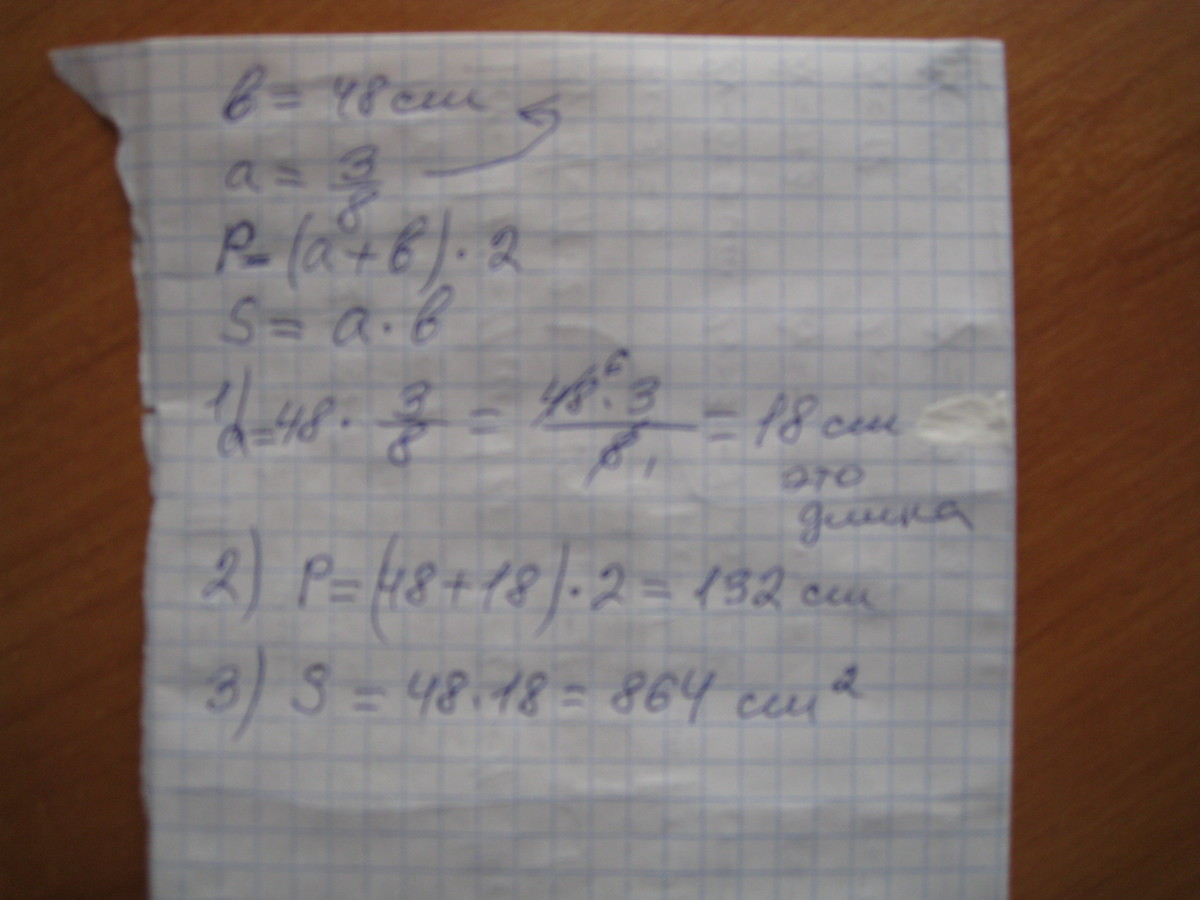 в = 48 см
а = 3/8
P = (а + в) · 2
S = а · в
1) а = 48 · 3/8 = 48⁶ · 3 / 8₁ = 18 см
это
длина
2) P = (48 + 18) · 2 = 132 см
3) S = 48 · 18 = 864 см²